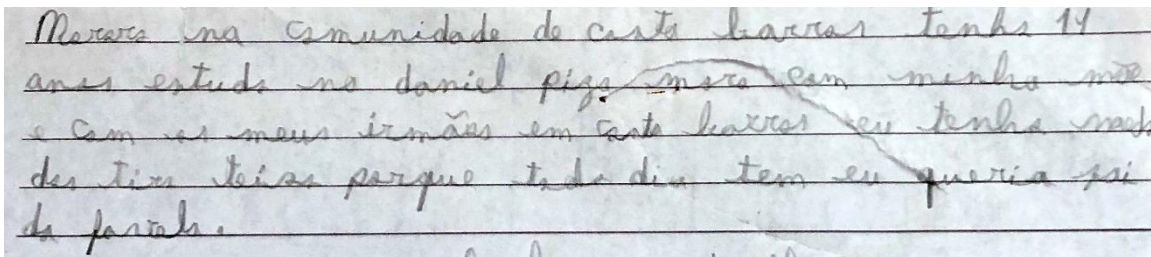 Moraro ina comunidade de casto barros tenho 14
anos estudo no daniel piza moro com minha mãe
e com os meus irmãos em casto barros eu tenho medo
dos tiro teios porque todo dia tem eu queria sai
da favela.